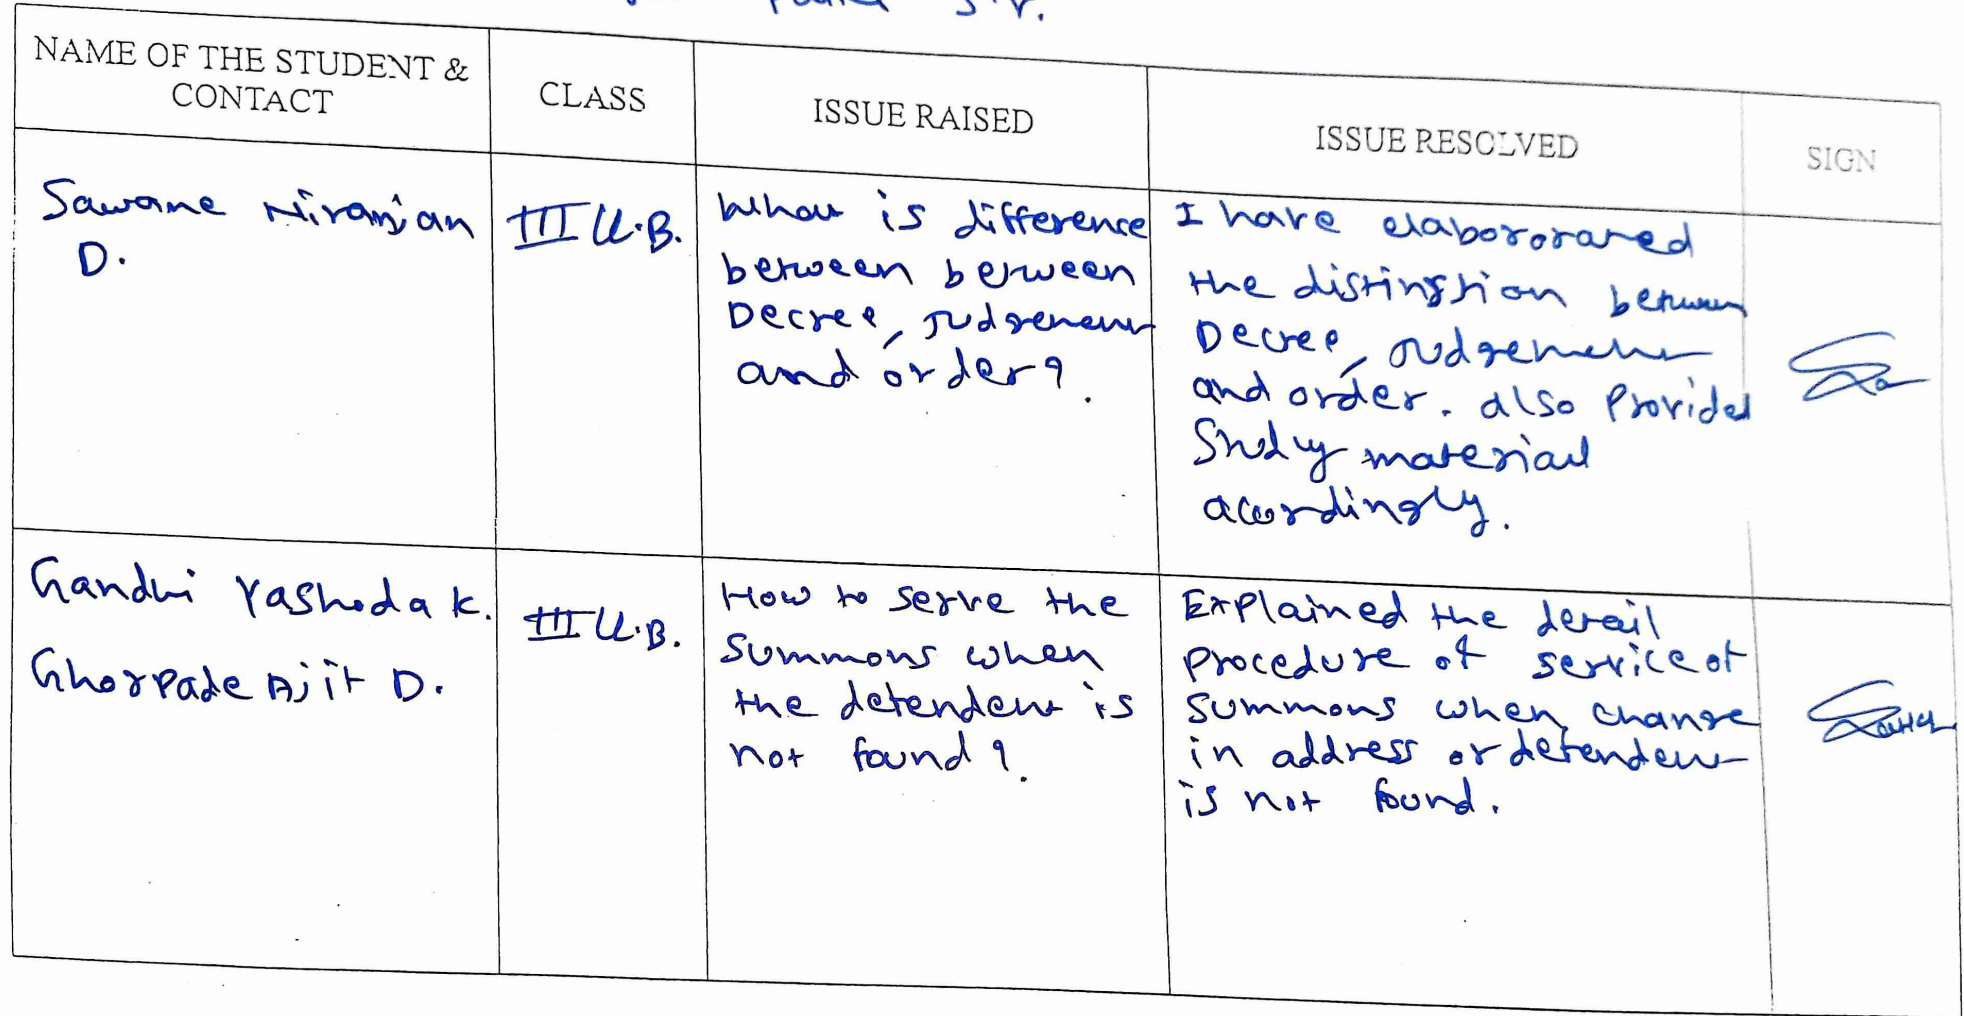 Sir.
NAME OF THE STUDENT &
CONTACT
CLASS
ISSUE RAISED
ISSUE RESOLVED
SIGN
Sawane Niranjan
D.
III LL.B.
What is difference
between between
Decree, Judgement
and order?
I have elabororated
the distinstion between
Decree, Judgement
and order. also Provided
Study material
acordingly.
Gandhi Yashoda K.
Ghorpade Ajit D.
III LL.B.
How to serve the
summons when
the defendent is
not found?
Explained the detail
Procedure of service of
summons when change
in address or defendent
is not found.